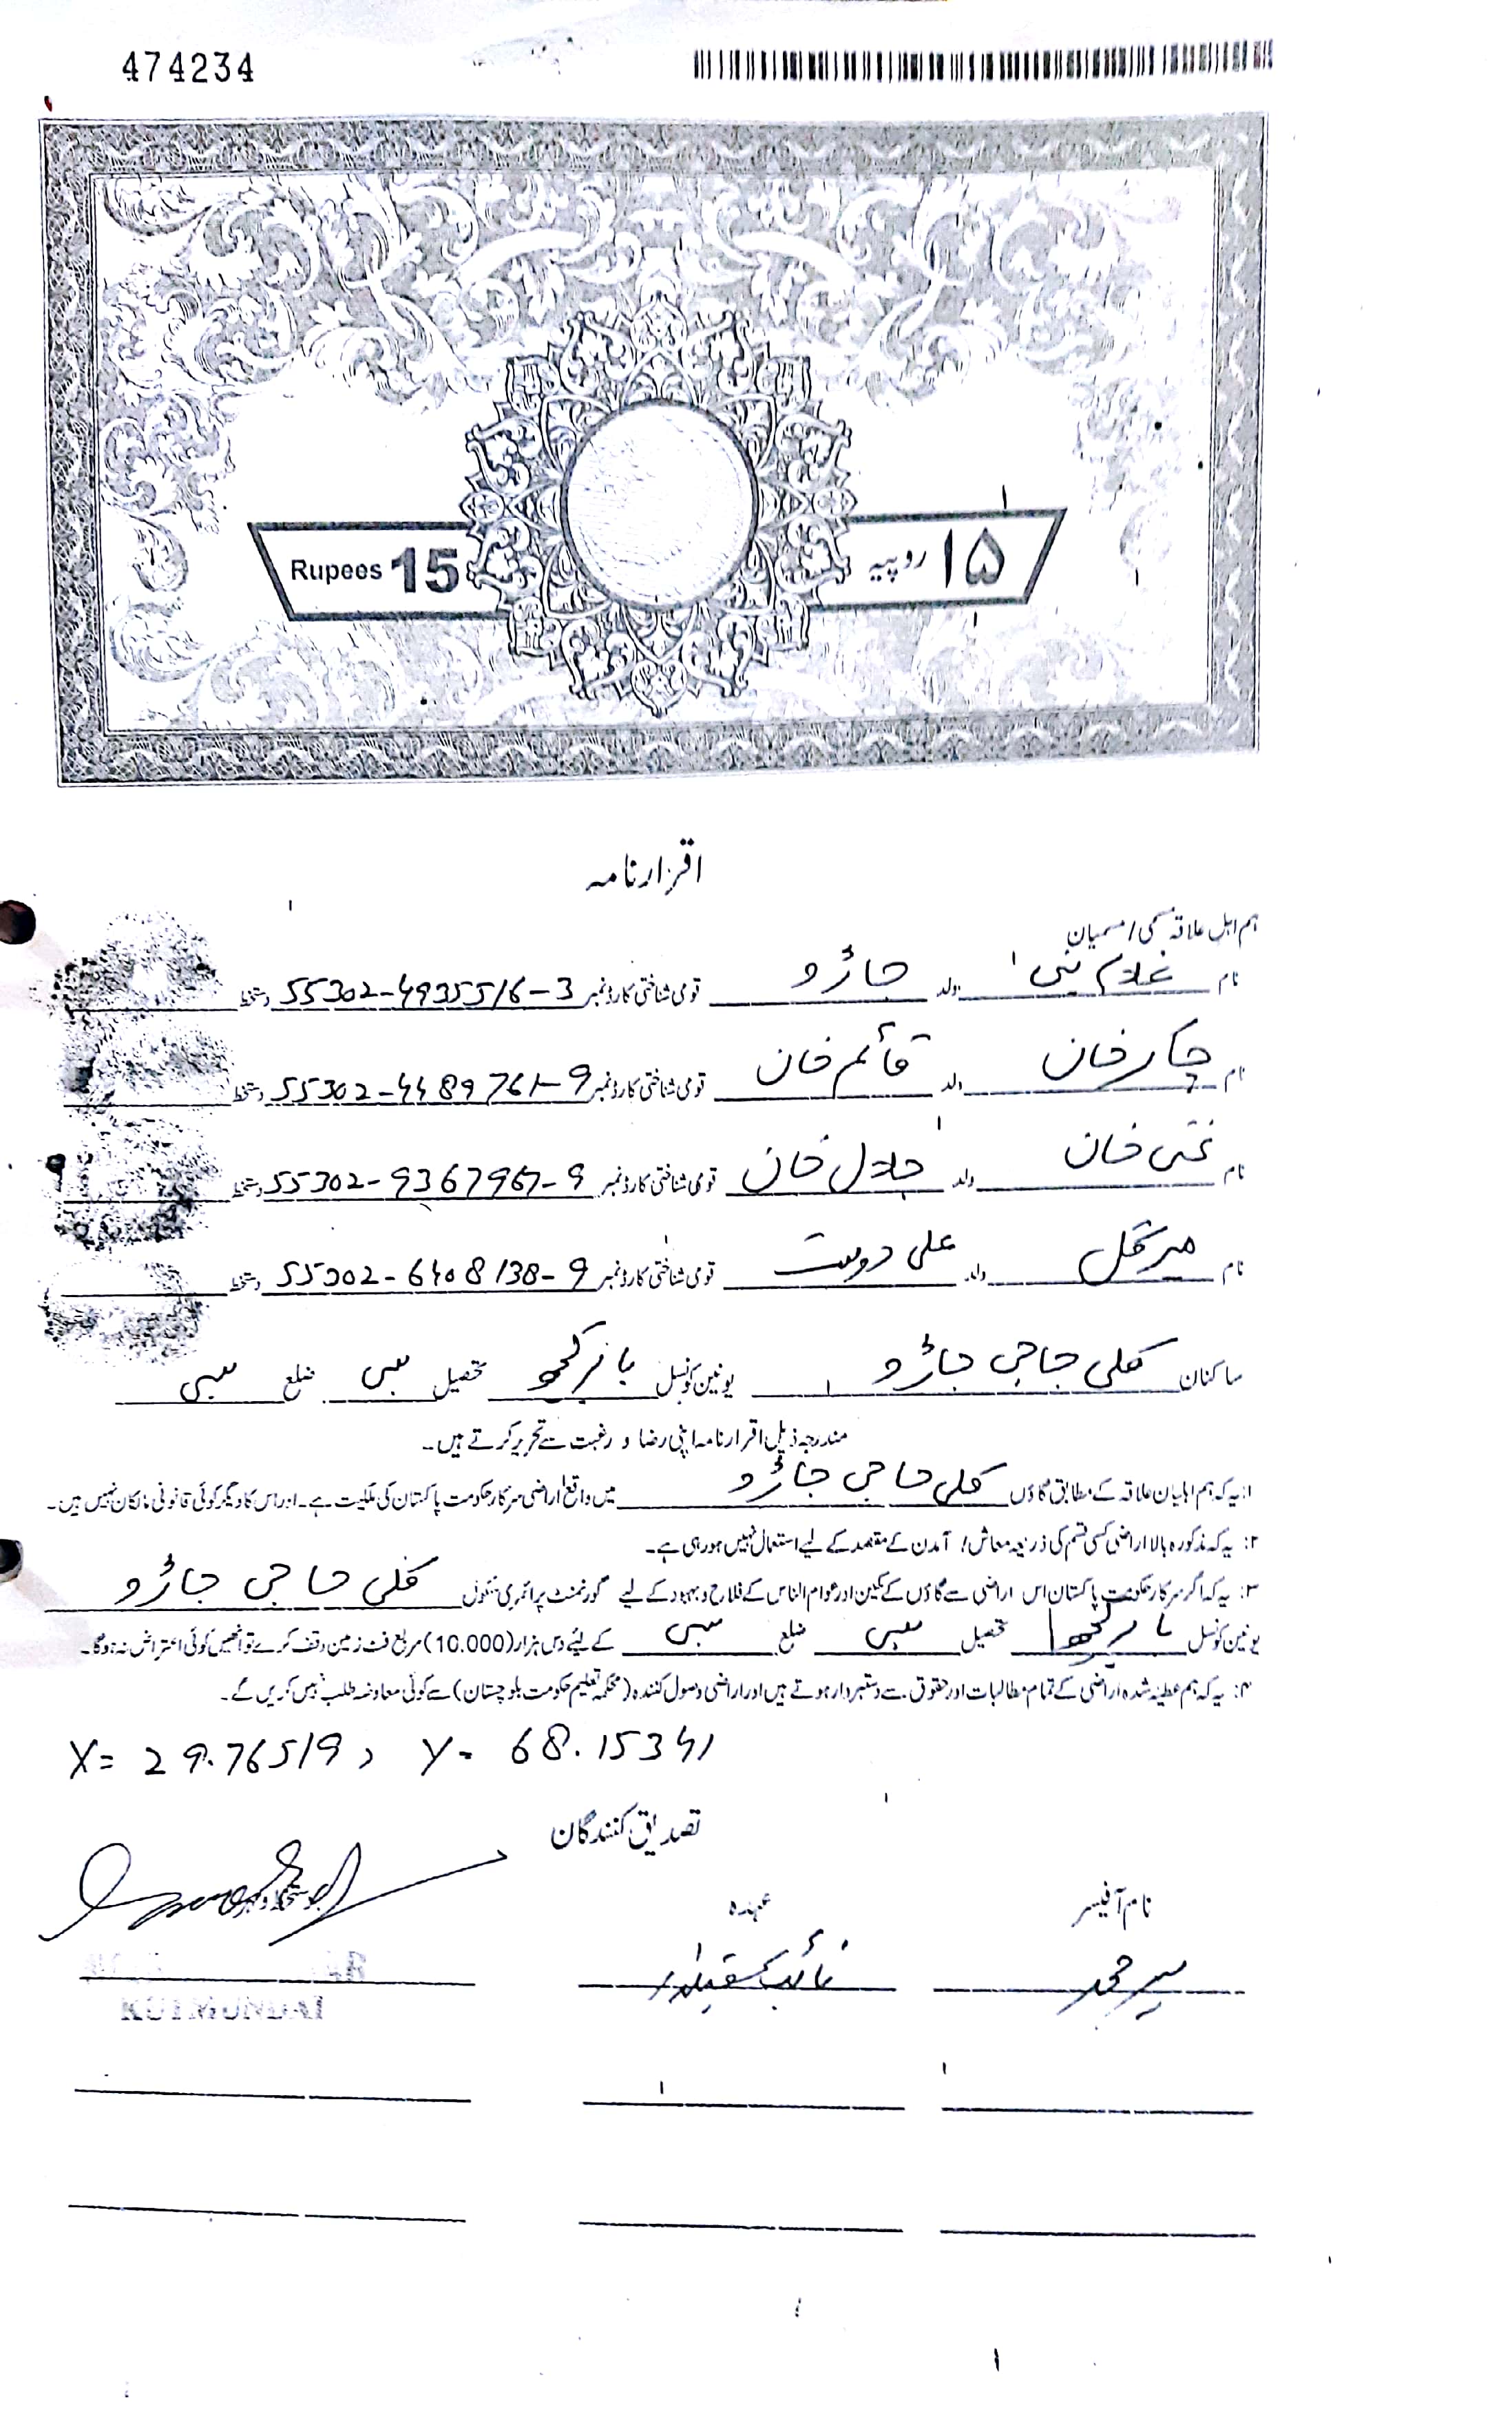 474234
Rupees 15
۱۵ روپیہ
اقرارنامہ
ہم اہل علاقہ مسمی / مسمیان
نام غلام نبی ولد جاڑو قومی شناختی کارڈ نمبر 55302-4935516-3 دستخط
نام چاکر خان ولد قائم خان قومی شناختی کارڈ نمبر 55302-4489761-9 دستخط
نام خان ولد جلال خان قومی شناختی کارڈ نمبر 55302-9367967-9 دستخط
نام ولد علی دوست قومی شناختی کارڈ نمبر 55302-6408138-9 دستخط
ساکنان کلی حاجی جاڑو یونین کونسل تحصیل سبی ضلع سبی
مندرجہ ذیل اقرارنامہ اپنی رضا و رغبت سے تحریر کرتے ہیں۔
۱: یہ کہ ہم اہلیان علاقہ کے مطابق گاؤں کلی حاجی جاڑو میں واقع اراضی سرکار حکومت پاکستان کی ملکیت ہے۔ اور اس کا دیگر کوئی قانونی مالکان نہیں ہیں۔
۲: یہ کہ مذکورہ بالا اراضی کسی قسم کی ذریعہ معاش / آمدن کے مقصد کے لیے استعمال نہیں ہو رہی ہے۔
۳: یہ کہ اگر سرکار حکومت پاکستان اس اراضی سے گاؤں کے مکین اور عوام الناس کے فلاح و بہبود کے لیے گورنمنٹ پرائمری سکول کلی حاجی جاڑو
یونین کونسل تحصیل سبی ضلع سبی کے لیئے دس ہزار (10.000) مربع فٹ زمین وقف کرے تو انھیں کوئی اعتراض نہ ہوگا۔
۴: یہ کہ ہم عطیہ شدہ اراضی کے تمام مطالبات اور حقوق سے دستبردار ہوتے ہیں اور اراضی وصول کنندہ (محکمہ تعلیم حکومت بلوچستان) سے کوئی معاوضہ طلب نہیں کریں گے۔
X= 29.76519, Y= 68.15341
تصدیق کنندگان
نام آفیسر عہدہ
نائب تحصیلدار